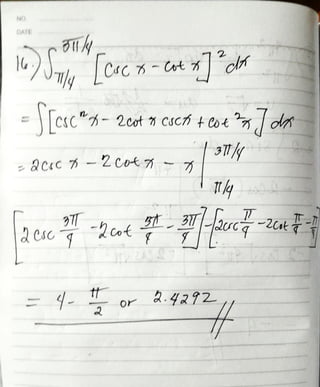 NO.
DATE
16.) ∫ π/4 3π/4 [csc x - cot x]² dx
= ∫[csc² x - 2cot x csc x + cot² x] dx
= 2csc x - 2cot x - x | 3π/4 π/4
[2csc 3π/4 - 2cot 3π/4 - 3π/4] - [2csc π/4 - 2cot π/4 - π/4]
= 4 - π/2 or 2.4292 //